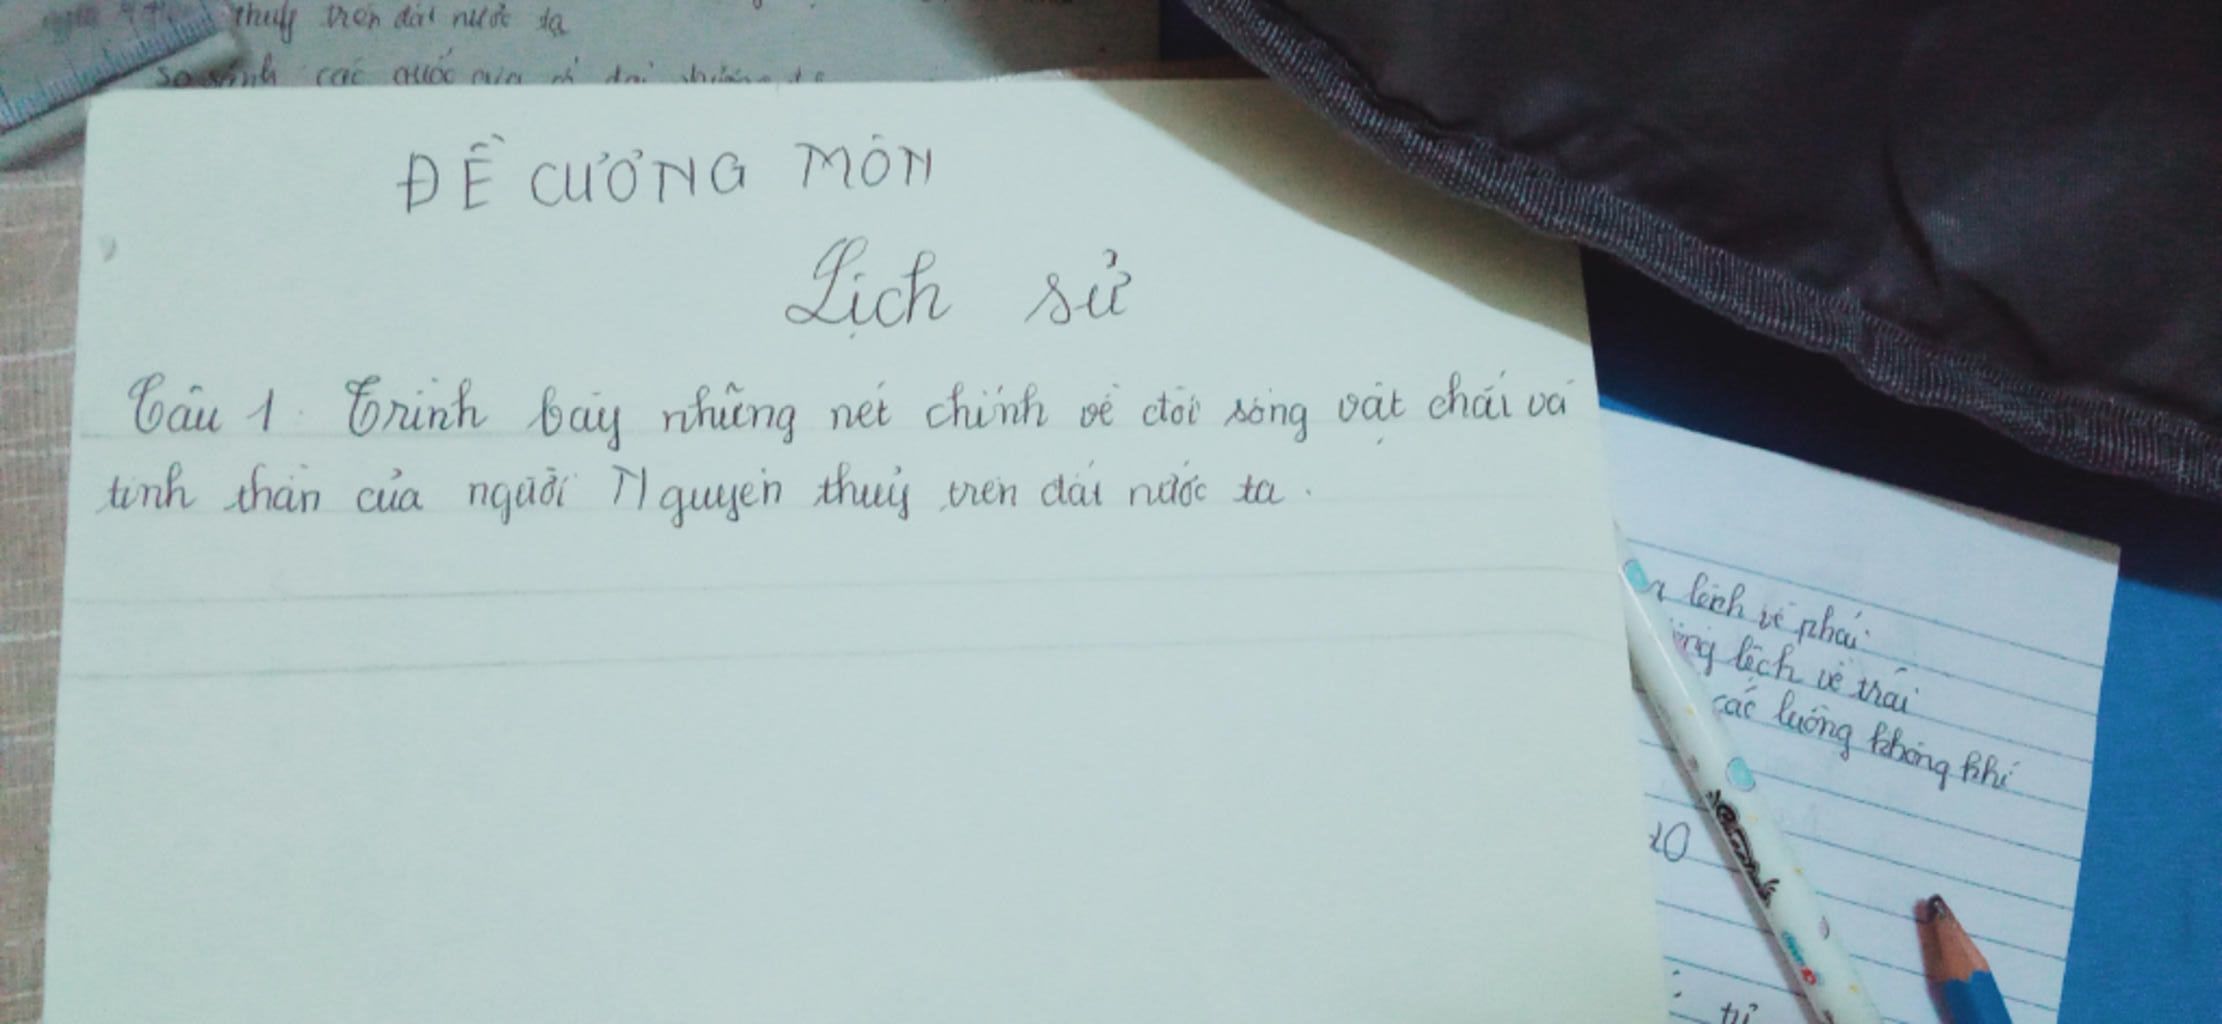 thuỷ trên đất nước ta
so sánh các quốc gia cổ đại
ĐỀ CƯƠNG MÔN
Lịch sử
Câu 1. Trình bày những nét chính về đời sống vật chất và
tinh thần của người Nguyên thuỷ trên đất nước ta.
lệch về phải
lệch về trái
các luồng không khí